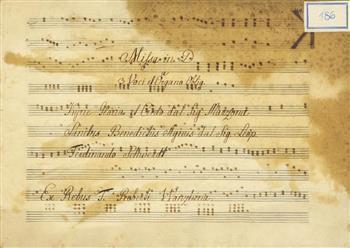 186
Missa in D
a Voci d'Organo Oblig.
Kyrie Gloria el Credo dal Sig. Mazzoni
Sanctus Benedictus Agnus dal Sig.
Ferdinando Schubert
Ex Rebus P. Roberti